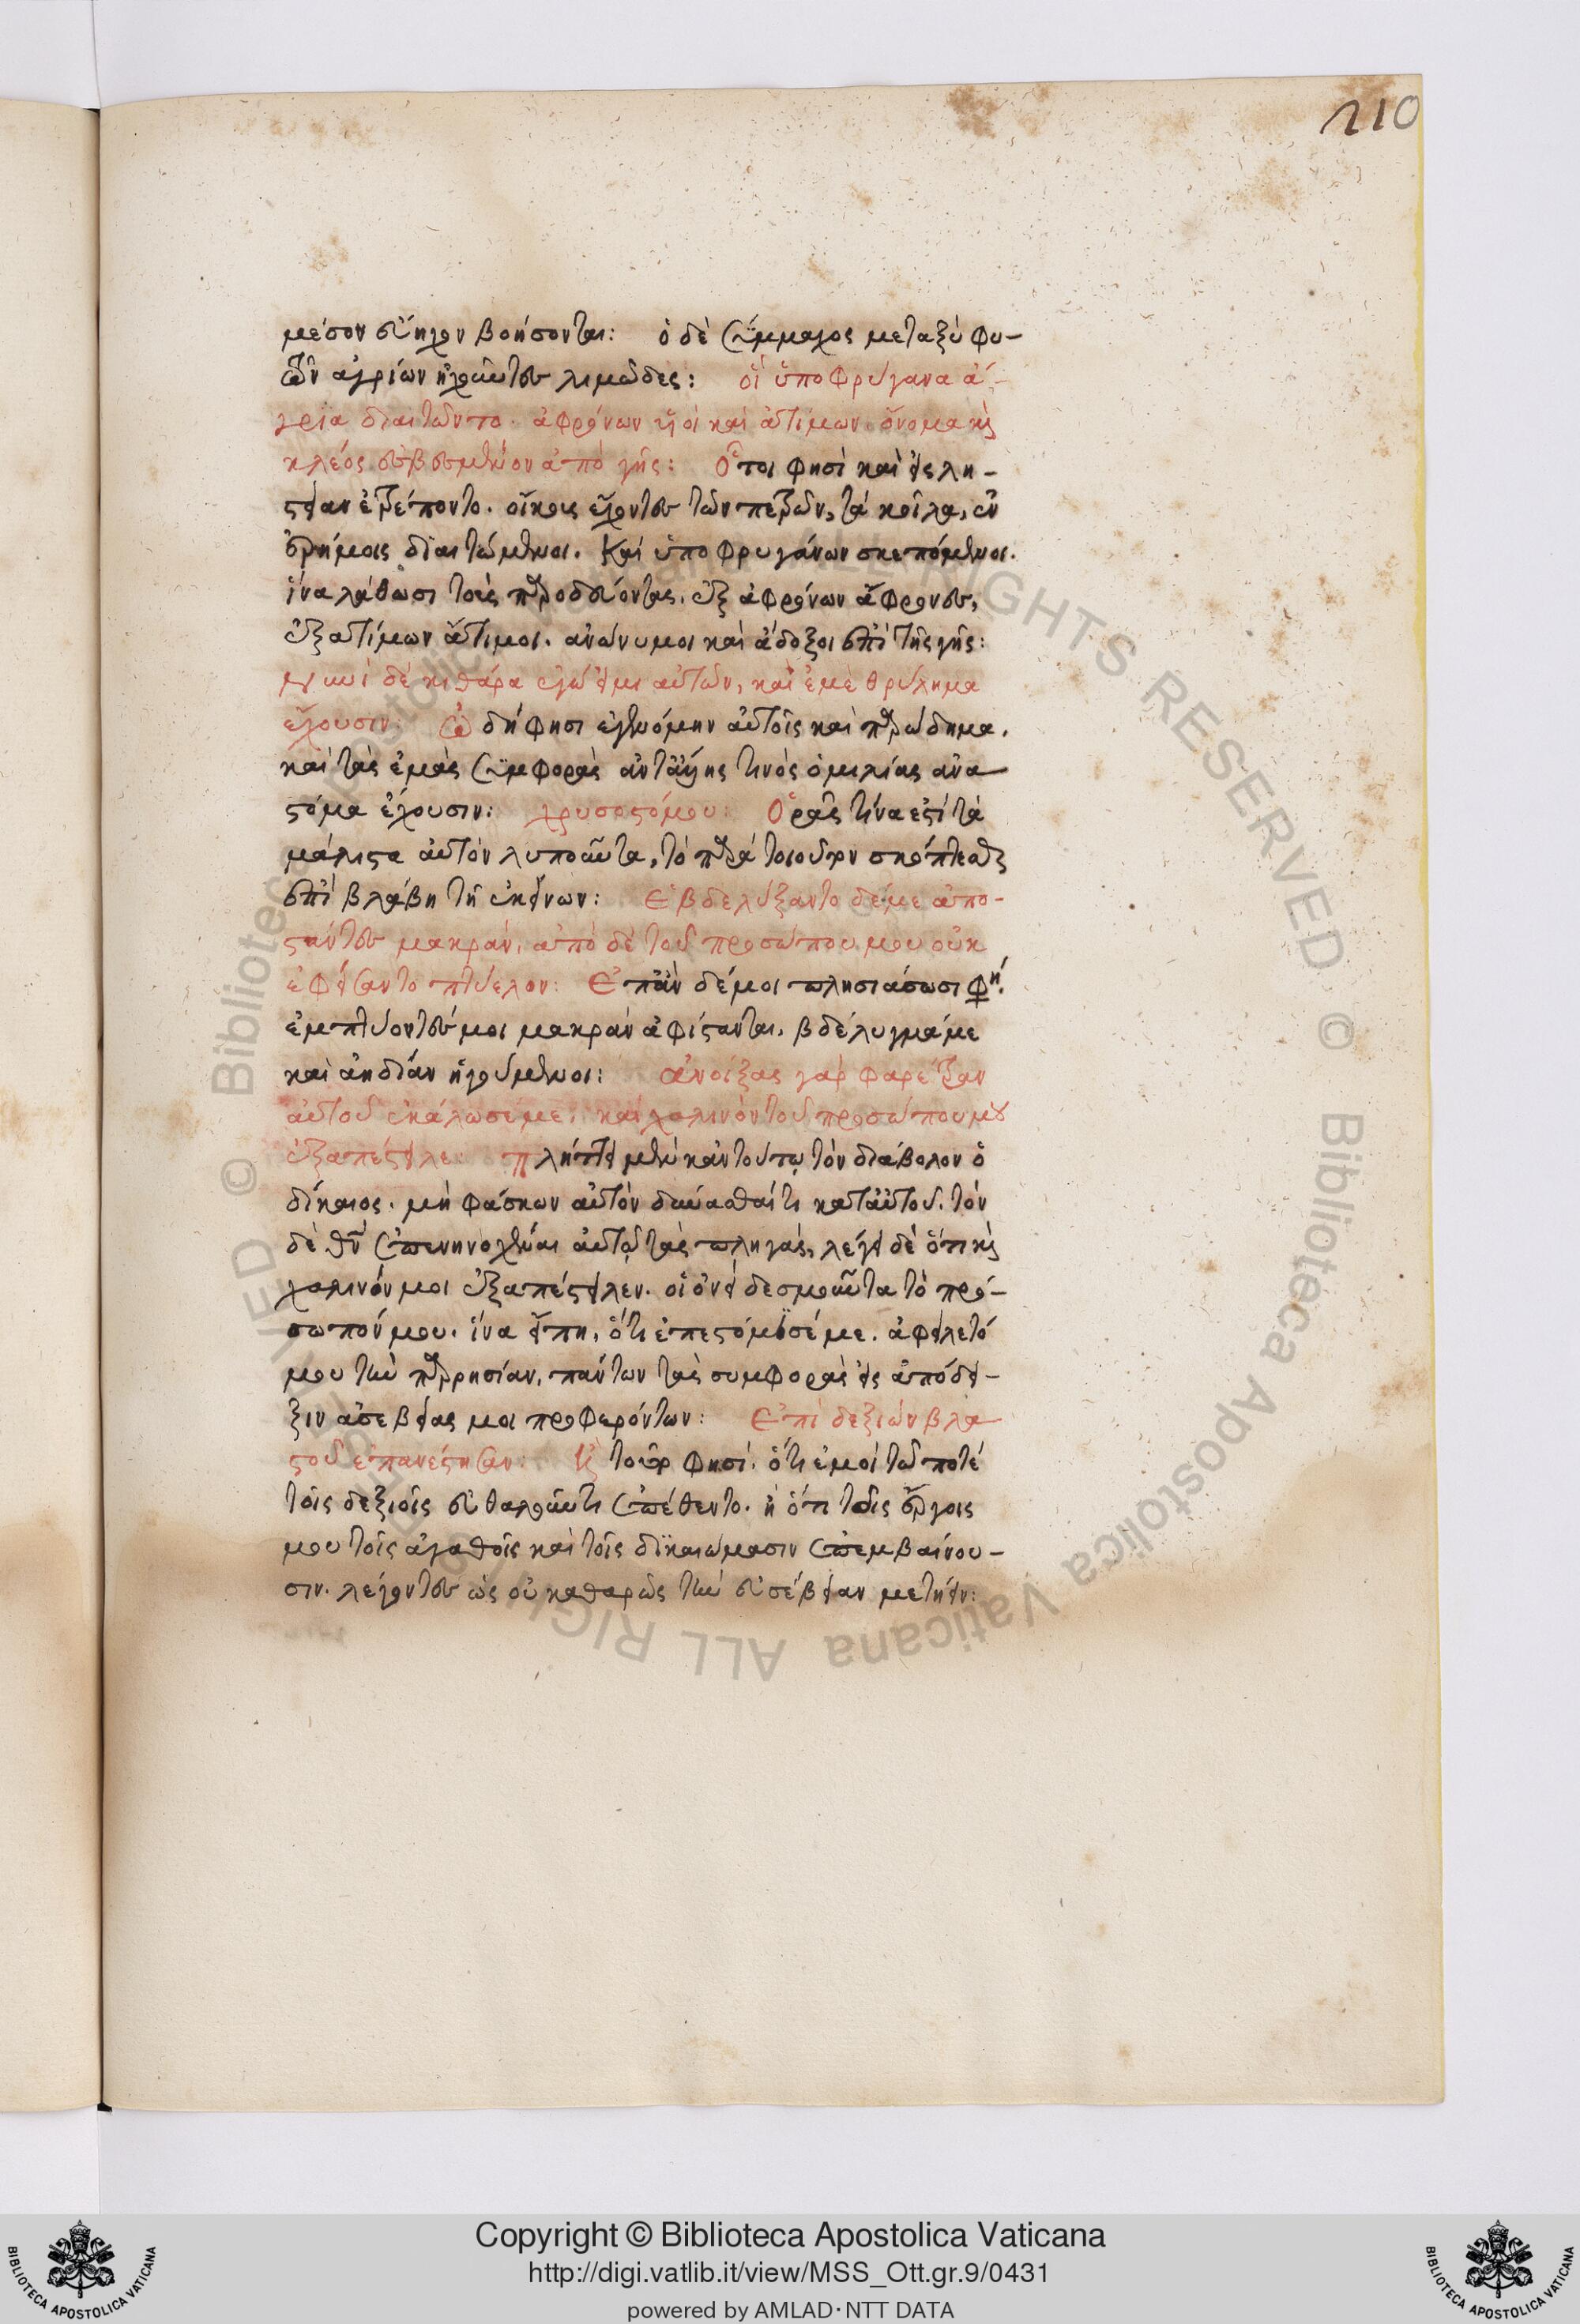 210
μέσον εὐήχων βοήσονται: ὁ δὲ Σύμμαχος μεταξὺ φυ-
τῶν ἀγρίων ἠχοῦντες λιμώδεις: οἳ ὑπὸ φρύγανα ἄ-
γρια διαιτῶντο. ἀφρόνων υἱοὶ καὶ ἀτίμων. ὄνομα καὶ
κλέος ἐσβεσμένον ἀπὸ γῆς: Οὗτοι φησὶ καὶ εἰς λη-
στείαν ἐτρέποντο. οἴκους ἔχοντες τῶν πετρῶν, τὰ κοῖλα, ἐν
ἐρήμοις διαιτώμενοι. Καὶ ὑπὸ φρυγάνων σκεπόμενοι.
ἵνα λάθωσι τοὺς παροδεύοντας. ἐξ ἀφρόνων ἄφρονες,
ἐξ ἀτίμων ἄτιμοι. ἀνώνυμοι καὶ ἄδοξοι ἐπὶ τῆς γῆς:
νυνὶ δὲ κιθάρα ἐγώ εἰμι αὐτῶν, καὶ ἐμὲ θρύλημα
ἔχουσιν: ᾠδή φησι ἐγενόμην αὐτοῖς καὶ παρώδημα.
καὶ τὰς ἐμὰς συμφορὰς ἀντ' ἄλλης τινὸς ὁμιλίας ἀνα
στόμα ἔχουσιν: χρυσοστόμου: Ὁρᾶς τίνα ἐστὶ τὰ
μάλιστα αὐτὸν λυποῦντα, τὸ παρὰ τοιούτων σκώπτεσθαι
ἐπὶ βλάβῃ τῇ ἐκείνων: Ἐβδελύξαντο δέ με ἀπο-
στάντες μακράν, ἀπὸ δὲ τοῦ προσώπου μου οὐκ
ἐφείσαντο πτύελον: Ἐπὰν δέ μοι πλησιάσωσι φη.
ἐμπτύοντές μοι μακρὰν ἀφίστανται. βδέλυγμά με
καὶ ἀηδίαν ἡγούμενοι: ἀνοίξας γὰρ φαρέτραν
αὐτοῦ ἐκάκωσέ με. καὶ χαλινὸν τοῦ προσώπου μου
ἐξαπέστειλε: πλήττει μὲν κἀν τούτῳ τὸν διάβολον ὁ
δίκαιος. μὴ φάσκων αὐτὸν δύνασθαί τι κατ' αὐτοῦ. τὸν
δὲ θεὸν ἐπενηνοχέναι αὐτῷ τὰς πληγάς, λέγει δὲ ὅτι καὶ
χαλινόν μοι ἐξαπέστειλεν. οἱονεὶ δεσμοῦντα τὸ πρό-
σωπόν μου. ἵνα εἴπῃ, ὅτι ἐπεστόμισέ με. ἀφείλετό
μου τὴν παρρησίαν, πάντων τὰς συμφορὰς εἰς ἀπόδει-
ξιν ἀσεβείας μοι προφερόντων: Ἐπὶ δεξιῶν βλα
στοῦ ἐπανέστησαν: Καὶ τοῦτο φησί. ὅτι ἐμοὶ τῷ ποτέ
τοῖς δεξιοῖς εὐθαλοῦντι ἐπέθεντο. ἢ ὅτι τοῖς ἔργοις
μου τοῖς ἀγαθοῖς καὶ τοῖς δικαιώμασιν ἐπεμβαίνου-
σιν. λέγοντες ὡς οὐ καθαρῶς τὴν εὐσέβειαν μετῄειν:
Copyright © Biblioteca Apostolica Vaticana
http://digi.vatlib.it/view/MSS_Ott.gr.9/0431
powered by AMLAD·NTT DATA
BIBLIOTECA APOSTOLICA VATICANA
BIBLIOTECA APOSTOLICA VATICANA
© Biblioteca Apostolica Vaticana ALL RIGHTS RESERVED © Biblioteca Apostolica Vaticana ALL RIGHTS RESERVED